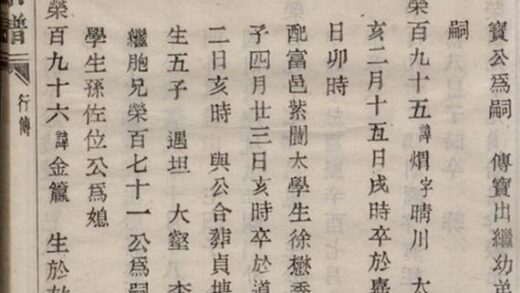 寶公爲嗣 傳寶出繼幼弟
嗣
榮百九十五 諱 字晴川 太
亥二月十五日戌時卒於嘉
日卯時
配富邑紫閬太學生徐懋
子四月廿三日亥時卒於道
二日亥時 與公合葬貞塘
生五子 遇坦 大壑
繼胞兄榮百七十一公爲嗣
學生孫佐位公爲媳
榮百九十六 諱金籯 生於
譜
行傳